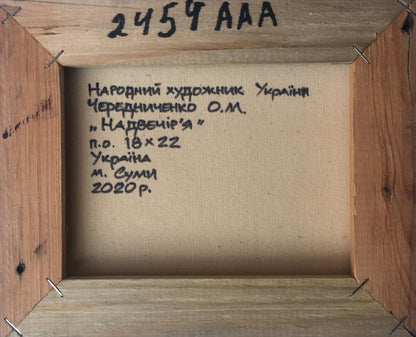 2454 AAA
Народний художник України
Чередниченко О.М.
„Надвечір'я"
п.о. 18×22
Україна
м. Суми
2020р.